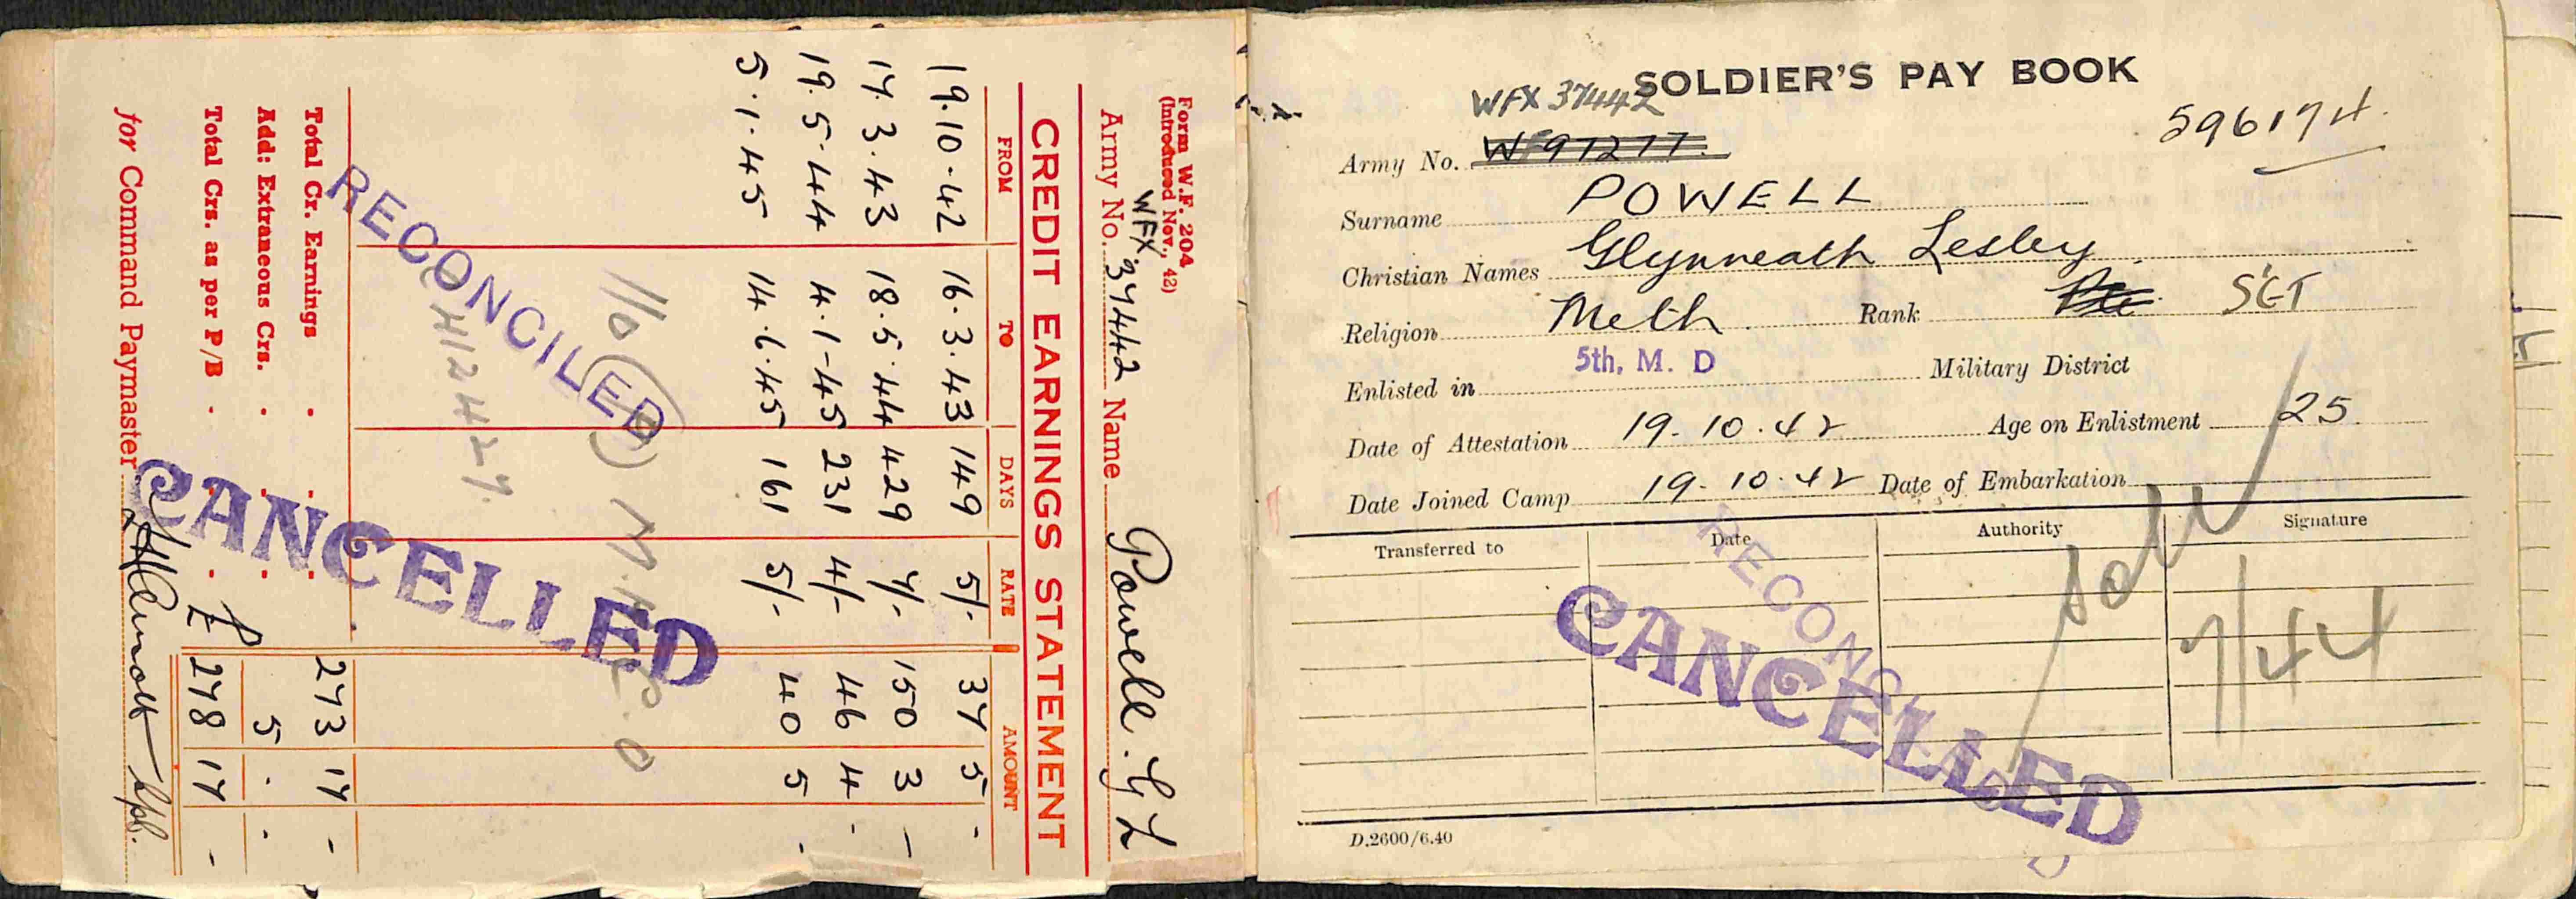 Form W.F. 204
(Introduced Nov., 42)
WFX.
Army No. 37442 Name Powell. G L
CREDIT EARNINGS STATEMENT
FROM TO DAYS RATE AMOUNT
19.10.42 16.3.43 149 5/- 37 5 -
17.3.43 18.5.44 429 7/- 150 3 -
19.5.44 4.1.45 231 4/- 46 4 -
5.1.45 14.6.45 161 5/- 40 5 -
RECONCILED
CANCELLED
Total Cr. Earnings 273 17 -
Add: Extraneous Crs. 5 . .
Total Crs. as per P/B £ 278 17 -
for Command Paymaster
SOLDIER'S PAY BOOK
WFX 37442
596174
Army No. WF97277
Surname POWELL
Christian Names Glynneath Lesley
Religion Meth. Rank Pte SGT
Enlisted in 5th, M. D Military District
Date of Attestation 19.10.42 Age on Enlistment 25
Date Joined Camp 19.10.42 Date of Embarkation
Transferred to Date Authority Signature
RECONCILED
CANCELLED
7/44
D.2600/6.40